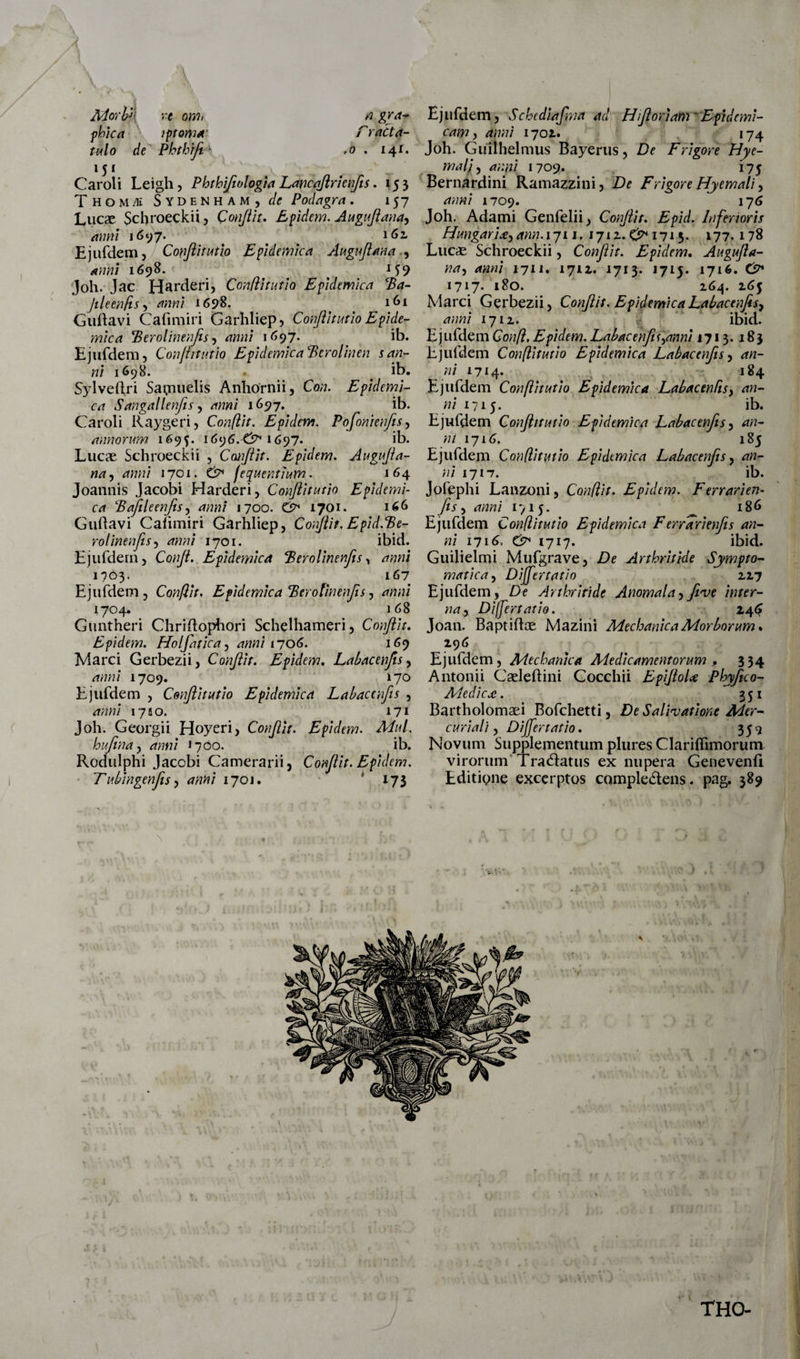 Morbi
phica
tulo de Phthisi . 141.
151
Caroli Leigh, Phthisiologia Lancastriensis. 153
THOMÆ SYDENHAM, de Podagra. 157
Lucæ Schroeckii, Constit. Epidem. Augustana,
anni 1697. 162
Ejusdem, Constitutio Epidemica Augustana,
anni 1698. 159
Joh. Jac Harderi, Constitutio Epidemica Ba-
sileensis, anni 1698. 161
Gustavi Casimiri Garhliep, Constitutio Epide-
mica Berolinensis, anni 1697. ib.
Ejusdem, Constitutio Epidemica Berolinen s an-
ni 1698. ib.
Sylvestri Samuelis Anhornii, Con. Epidemi-
ca Sangallensis, anni 1697. ib.
Caroli Raygeri, Constit. Epidem. Posoniensis,
annorum 1695. 1696. & 1697. ib.
Lucæ Schroeckii, Constit. Epidem. Augusta-
na, anni 1701. & sequentium. 164
Joannis Jacobi Harderi, Constitutio Epidemi-
ca Basileensis, anni 1700. & 1701. 166
Gustavi Casimiri Garhliep, Constit. Epid. Be-
rolinensis, anni 1701. ibid.
Ejusdem, Const. Epidemica Berolinensis, anni
1703. 167
Ejusdem, Constit. Epidemica Berolinensis, anni
1704. 168
Guntheri Christophori Schelhameri, Constit.
Epidem. Holsatica, anni 1706. 169
Marci Gerbezii, Constit. Epidem. Labacensis,
anni 1709. 170
Ejusdem, Constitutio Epidemica Labacensis,
anni 1710. 171
Joh. Georgii Hoyeri, Constit. Epidem. Mul.
husina, anni 1700. ib.
Rodulphi Jacobi Camerarii, Constit. Epidem.
Tubingensis, anni 1701. 173
Ejusdem, Schediasma ad Historiam Epidemi-
cam, anni 1702. 174
Joh. Guilhelmus Bayerus, De Frigore Hye-
mali, anni 1709. 175
Bernardini Ramazzini, De Frigore Hyemali,
anni 1709. 176
Joh. Adami Genselii, Constit. Epid. Inferioris
Hungariæ, ann. 1711. 1712. & 1713. 177. 178
Lucæ Schroeckii, Constit. Epidem. Augusta-
na, anni 1711. 1712. 1713. 1715. 1716. &
1717. 180. 264. 265
Marci Gerbezii, Constit. Epidemica Labacensis,
anni 1712. ibid.
Ejusdem Const. Epidem. Labacensis, anni 1713. 183
Ejusdem Constitutio Epidemica Labacensis, an-
ni 1714. 184
Ejusdem Constitutio Epidemica Labacensis, an-
ni 1715. ib.
Ejusdem Constitutio Epidemica Labacensis, an-
ni 1716. 185
Ejusdem Constitutio Epidemica Labacensis, an-
ni 1717. ib.
Josephi Lanzoni, Constit. Epidem. Ferrarien-
sis, anni 1715. 186
Ejusdem Constitutio Epidemica Ferrariensis an-
ni 1716. & 1717. ibid.
Guilielmi Musgrave, De Arthritide Sympto-
matica, Dissertatio 227
Ejusdem, De Arthritide Anomala, sive inter-
na, Dissertatio. 246
Joan. Baptistæ Mazini Mechanica Morborum.
296
Ejusdem, Mechanica Medicamentorum. 334
Antonii Cælestini Cocchii Epistolæ Physico-
Medicæ. 351
Bartholomæi Boschetti, De Salivatione Mer-
curiali, Dissertatio. 352
Novum Supplementum plures Clarissimorum
virorum Tractatus ex nupera Genevensi
Editione excerptos complectens. pag. 389
THO-